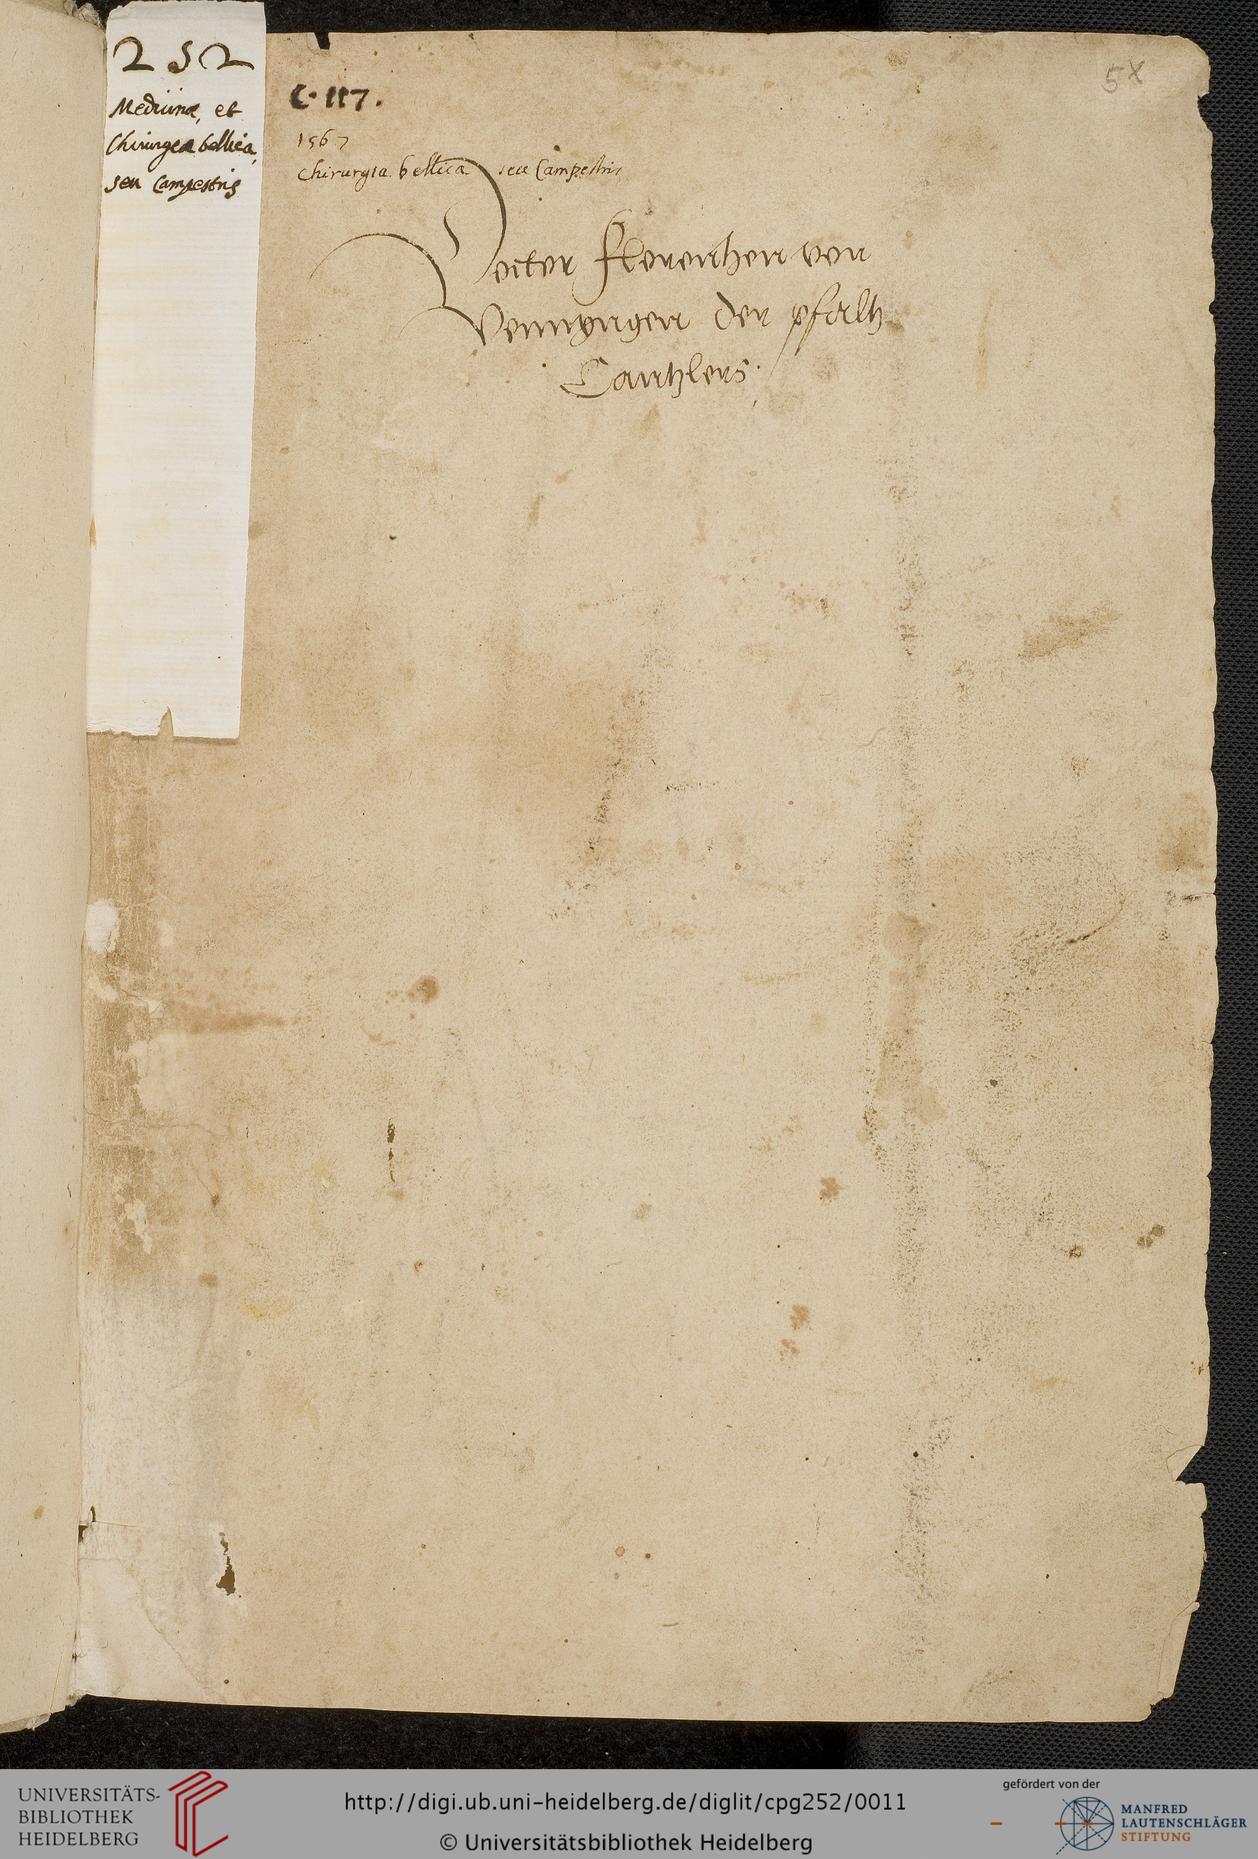 252
Medicinæ, et
Chirurgea bellica,
seu Campestris
C. 117.
5x
1567
Chirurgia bellica seu Campestris
Doctor Florenhen von
Venmyngen der pfaltz
Cantzlers.
UNIVERSITÄTS-
BIBLIOTHEK
HEIDELBERG
http://digi.ub.uni-heidelberg.de/diglit/cpg252/0011
© Universitätsbibliothek Heidelberg
gefördert von der
MANFRED
LAUTENSCHLÄGER
STIFTUNG